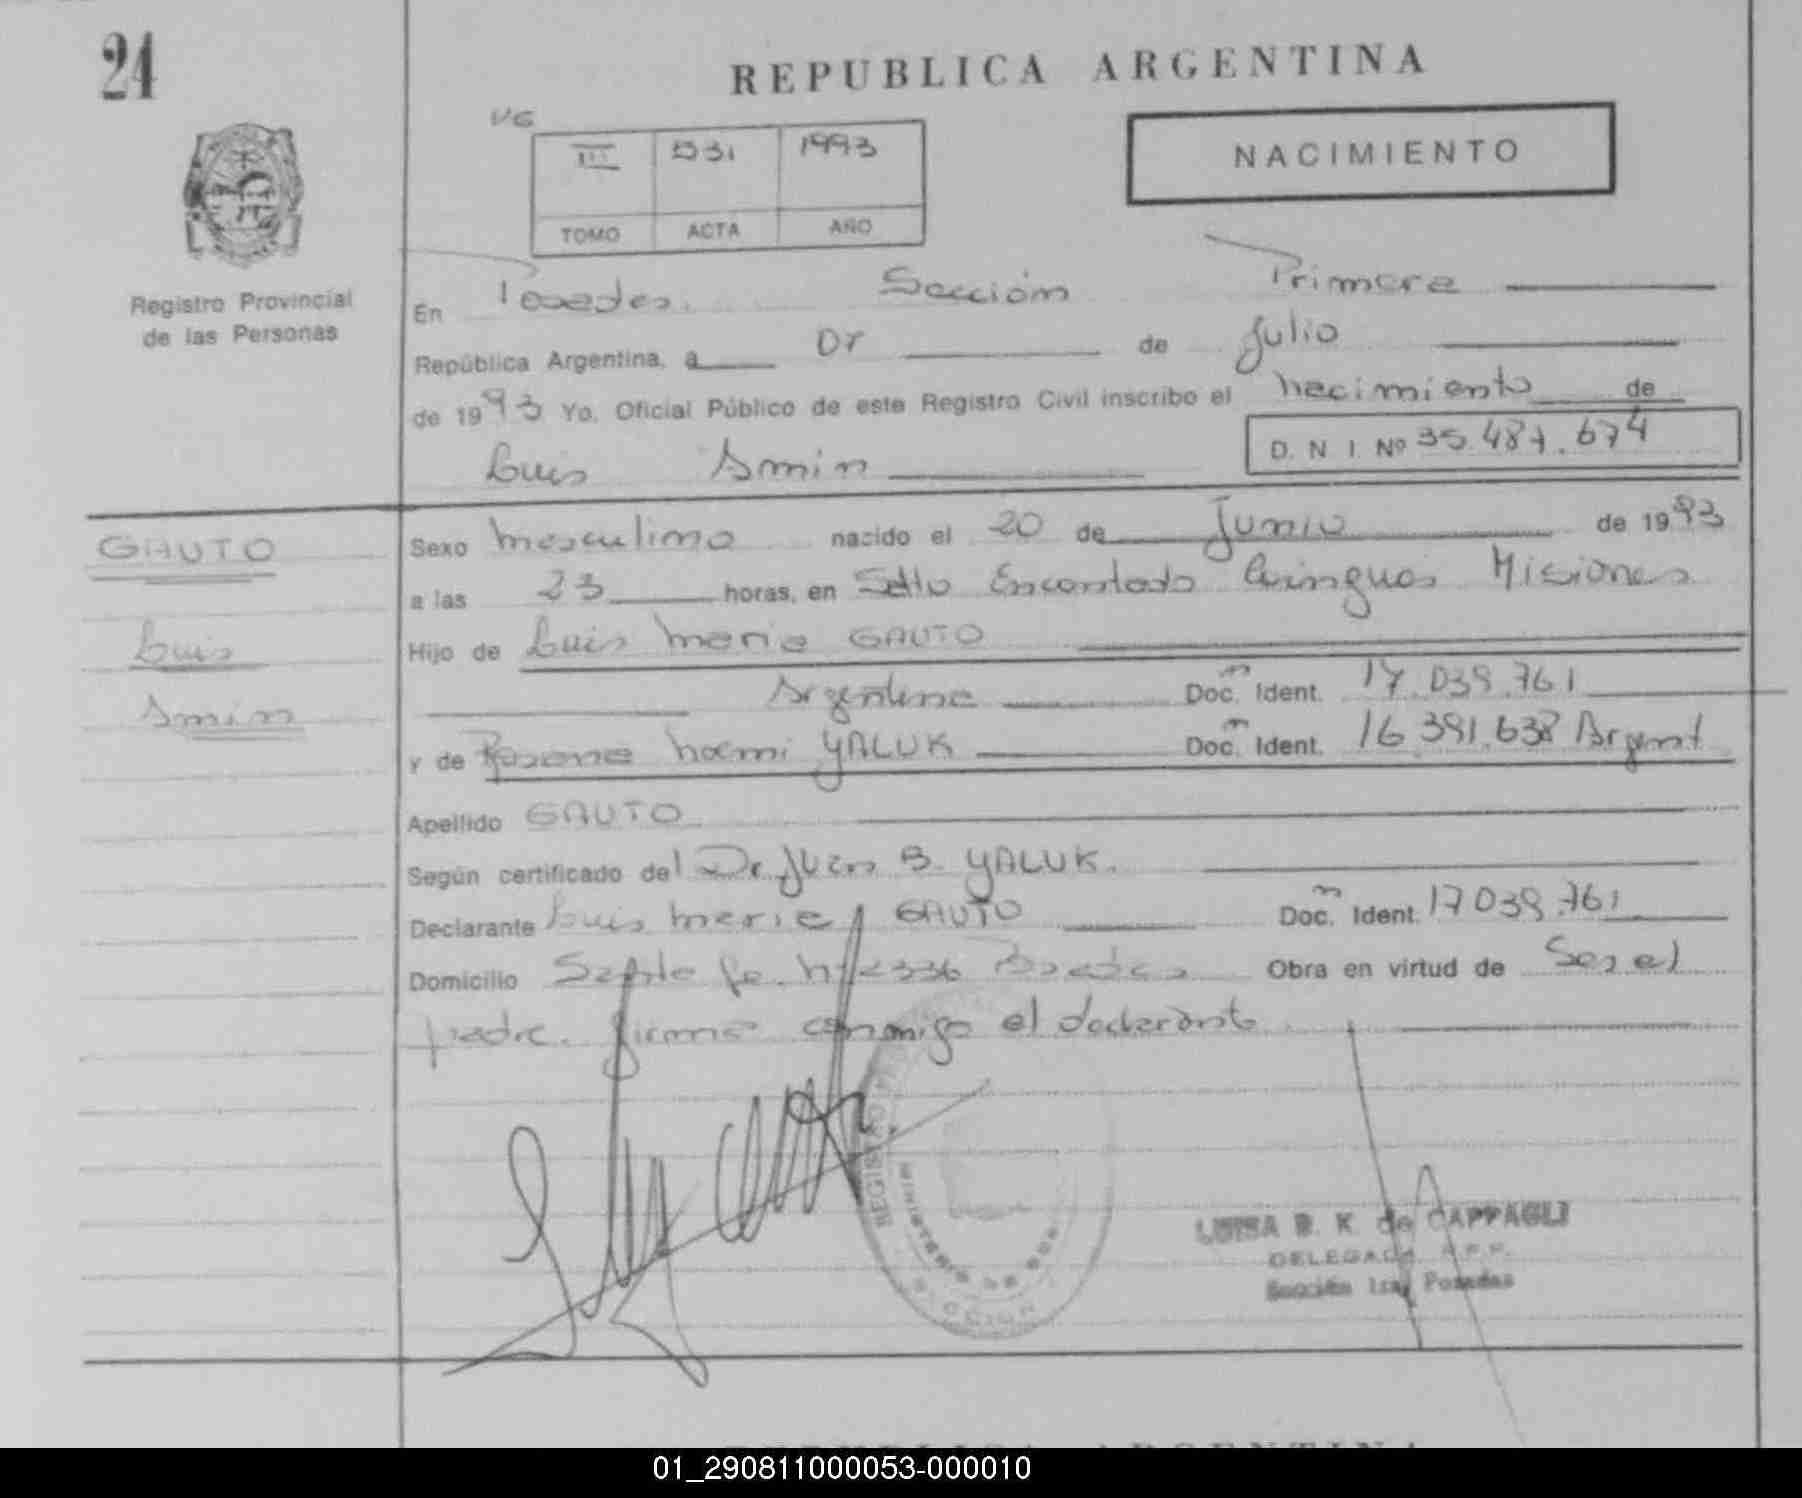 24
REPUBLICA ARGENTINA
VG
III 531 1993
TOMO ACTA AÑO
NACIMIENTO
Registro Provincial
de las Personas
En Posadas. Sección Primera
República Argentina, a 07 de Julio
de 1993 Yo, Oficial Público de este Registro Civil inscribo el nacimiento de
D. N I. Nº 35.487.674
Luis Amin
GAUTO
Luis
Amin
Sexo masculino nacido el 20 de Junio de 1993
a las 23 horas, en Salto Encantado Cainguas Misiones
Hijo de Luis Maria GAUTO
Argentina Doc. Ident. 17.039.761
y de Roxana Noemi YALUK Doc. Ident. 16.391.638 Argent
Apellido GAUTO
Según certificado del Dr Juan B. YALUK.
Declarante Luis Maria GAUTO Doc. Ident. 17 039.761
Domicilio Santa Fe. Nº 2336 Posadas Obra en virtud de Ser el
padre. firma conmigo el declarante
MINISTERIO DE GOB
LUISA B. K. de CAPPAGLI
DELEGADA R.P.P.
Sección 1ra. Posadas
REPUBLICA ARGENTINA
01_290811000053-000010